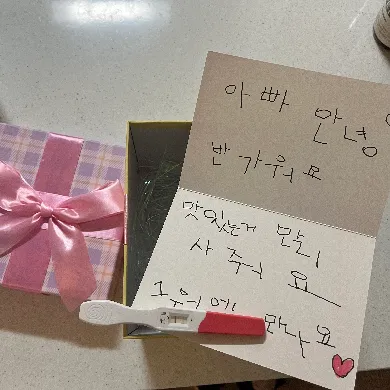 아빠 안녕
반가워요
맛있는거 많이
사 주식 요
에 만나요